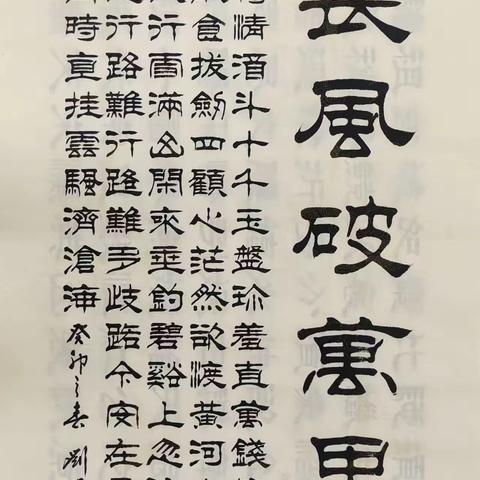 長風破萬里
清酒斗十千玉盤珍羞直萬錢
食拔劒四顧心茫然欲渡黃河
行雪滿山閑來垂釣碧谿上忽
行路難行路難多歧路今安在
時直挂雲濟滄海 癸卯之春 劉